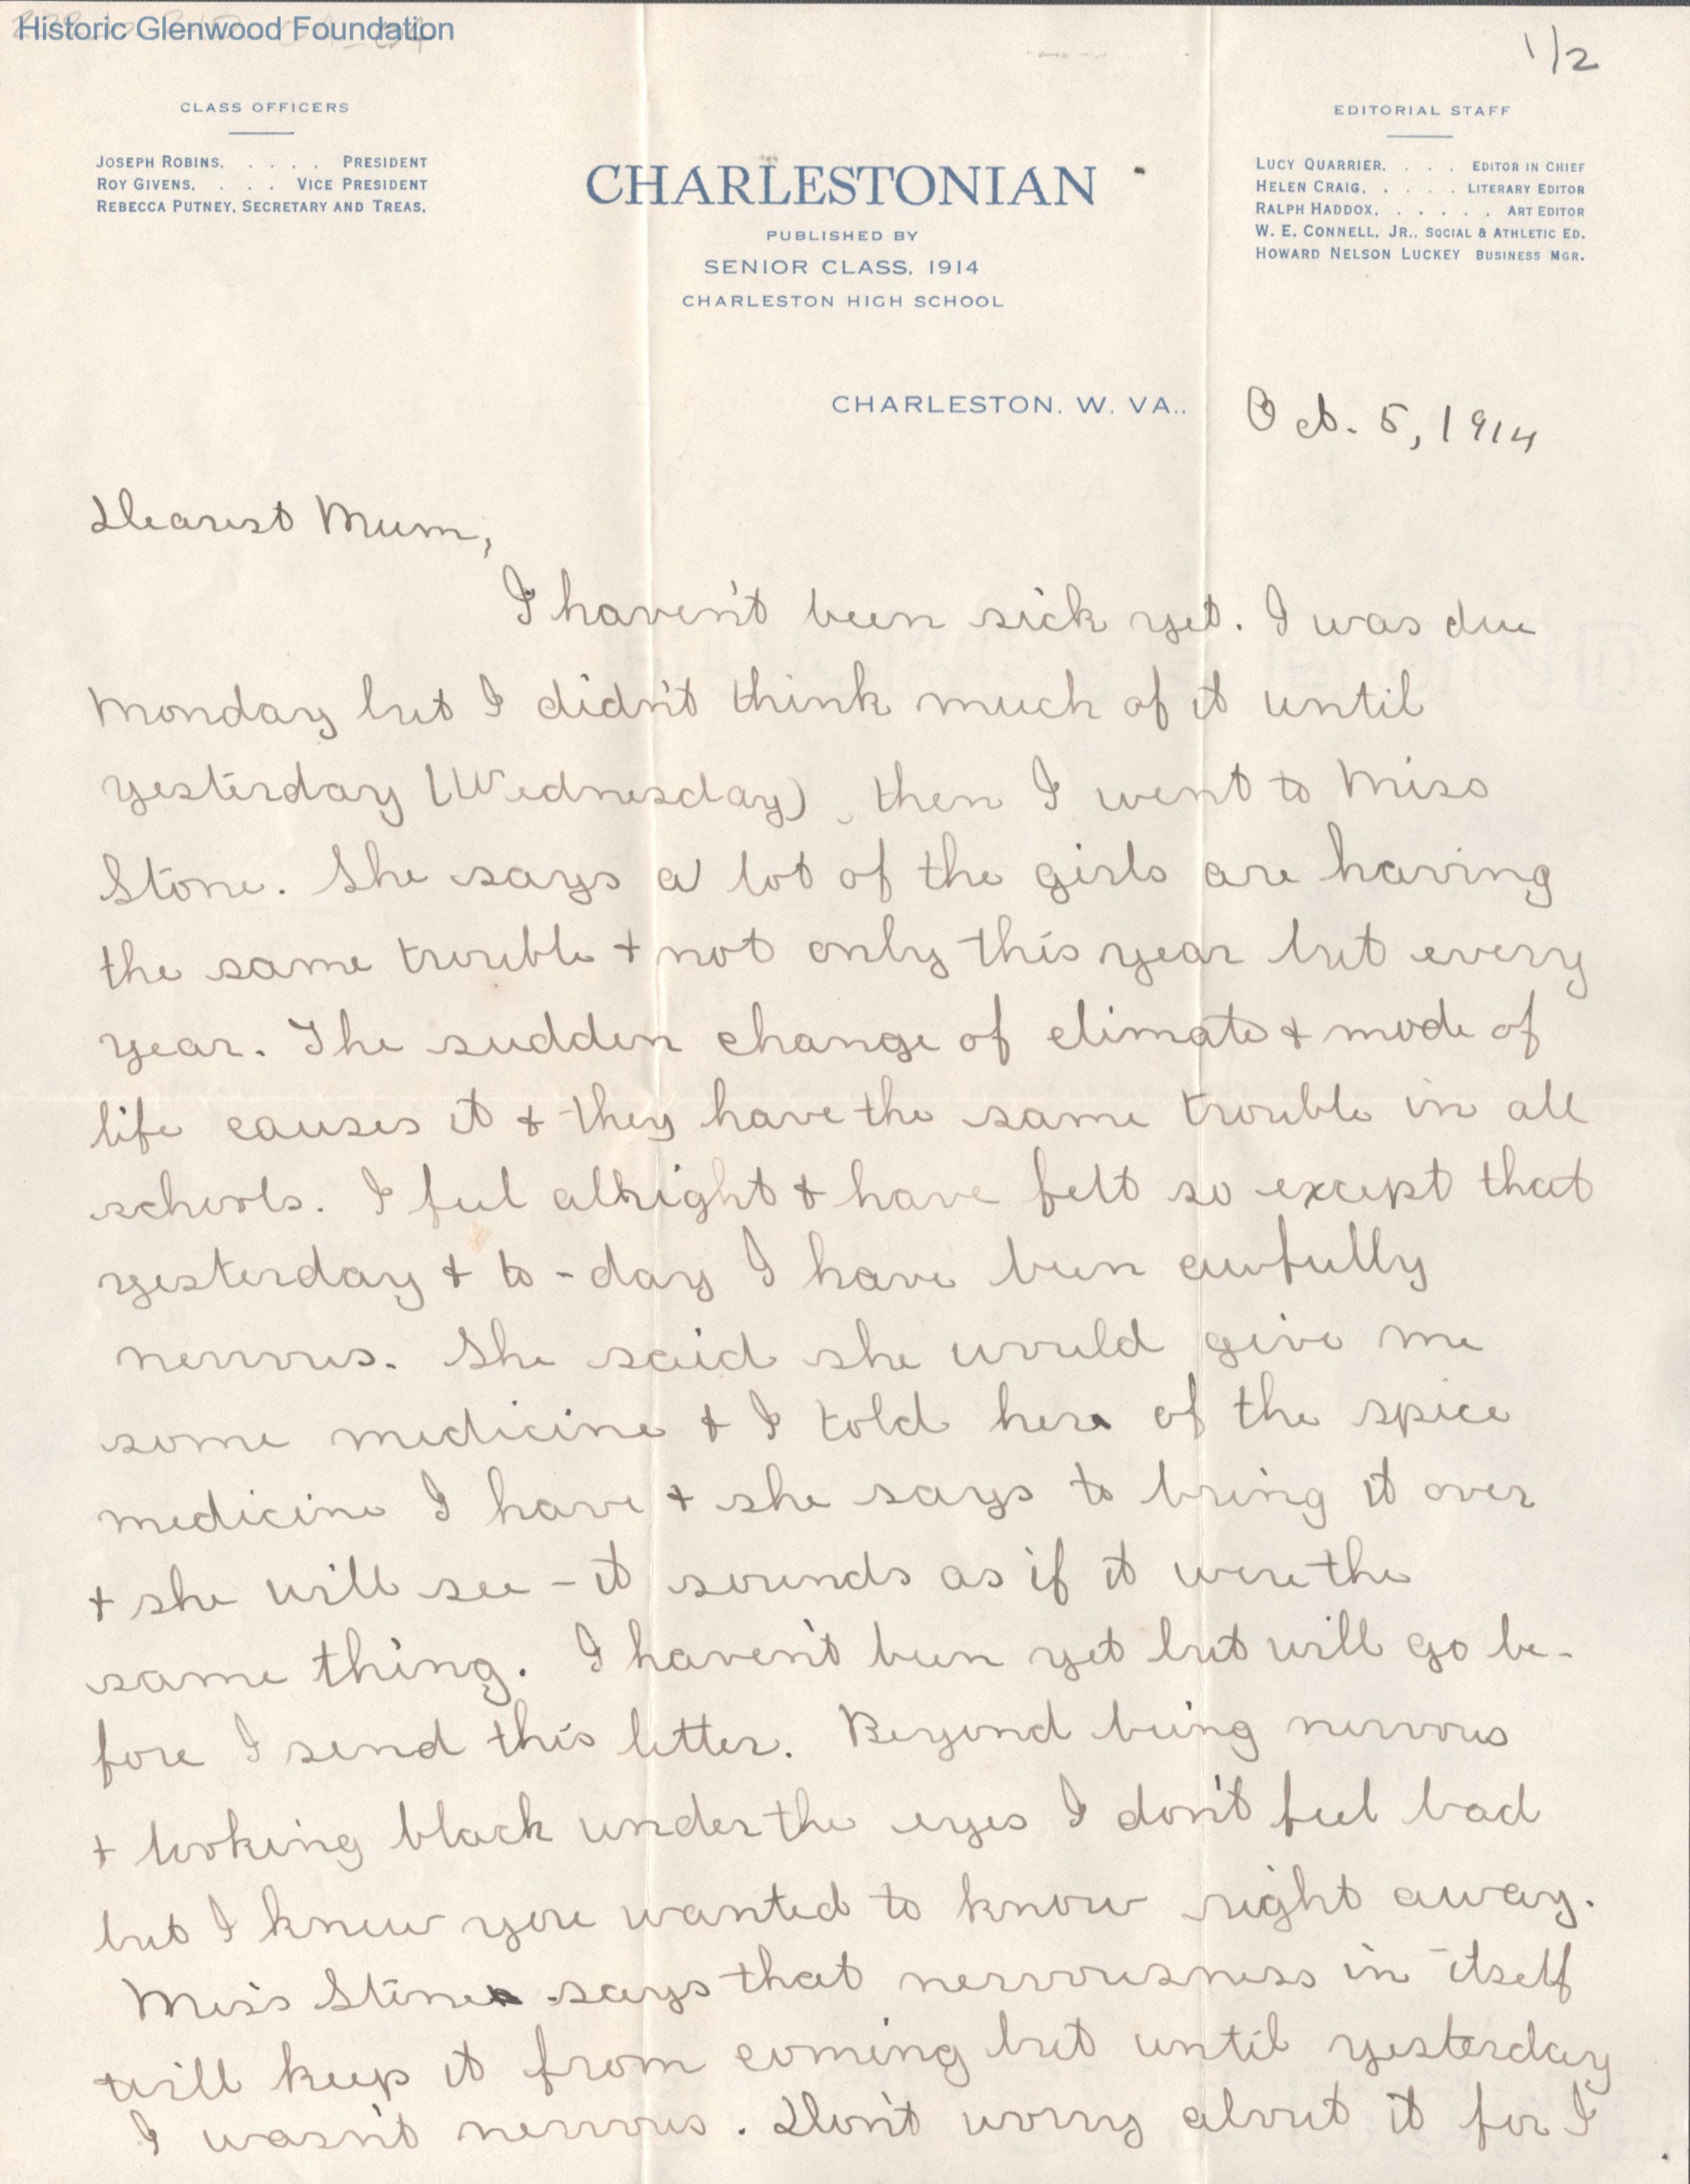 Historic Glenwood Foundation
1/2
CLASS OFFICERS
JOSEPH ROBINS, . . . . PRESIDENT
ROY GIVENS, . . . VICE PRESIDENT
REBECCA PUTNEY, SECRETARY AND TREAS.
CHARLESTONIAN
PUBLISHED BY
SENIOR CLASS, 1914
CHARLESTON HIGH SCHOOL
EDITORIAL STAFF
LUCY QUARRIER. . . . EDITOR IN CHIEF
HELEN CRAIG, . . . . . LITERARY EDITOR
RALPH HADDOX, . . . . . ART EDITOR
W. E. CONNELL, JR., SOCIAL & ATHLETIC ED.
HOWARD NELSON LUCKEY BUSINESS MGR.
CHARLESTON, W. VA., Oct. 5, 1914
Dearest Mum,
I haven't been sick yet. I was due
Monday but I didn't think much of it until
yesterday (Wednesday), then I went to Miss
Stone. She says a lot of the girls are having
the same trouble + not only this year but every
year. The sudden change of climate + mode of
life causes it + they have the same trouble in all
schools. I feel allright + have felt so except that
yesterday + to-day I have been awfully
nervous. She said she would give me
some medicine + I told her of the spice
medicine I have + she says to bring it over
+ she will see - it sounds as if it were the
same thing. I haven't been yet but will go be-
fore I send this letter. Beyond being nervous
+ looking black under the eyes I don't feel bad
but I knew you wanted to know right away.
Miss Stone says that nervousness in itself
will keep it from coming but until yesterday
I wasn't nervous. Don't worry about it for I